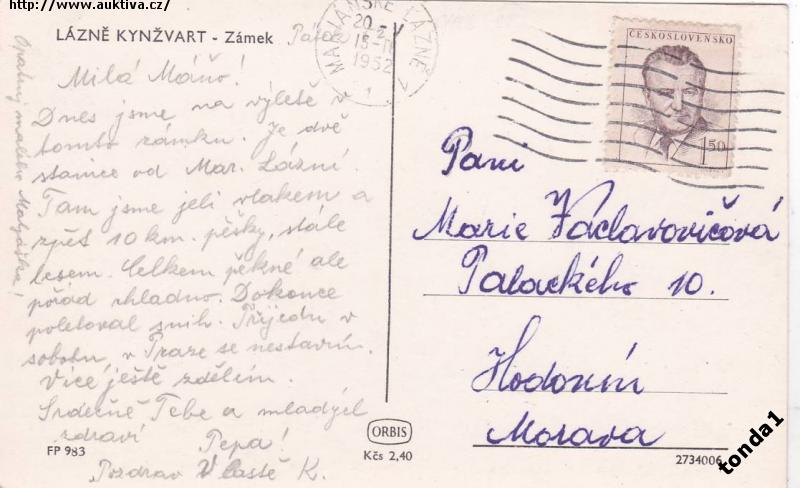 http://www.auktiva.cz/
LÁZNĚ KYNŽVART - Zámek
MARIÁNSKÉ LÁZNĚ 7
20-2
15-IV
1952
1
ČESKOSLOVENSKO
1.50
Milá Máňo!
Dnes jsme na výletě v
tomto zámku. Je dvě
stanice od Mar. Lázní.
Tam jsme jeli vlakem a
zpět 10 km. pěšky, stále
lesem. Celkem pěkné ale
pořád chladno. Dokonce
poletoval sníh. Přijedu v
sobotu, v Praze se nestavím.
Více ještě zdělím.
Srdečně Tebe a mladých
zdraví
Pepa!
Pozdrav Vlastě K.
malého Matýska!
Paní
Marie Václavovičová
Palackého 10.
Hodonín
Morava
FP 983
ORBIS
Kčs 2,40
2734006
tonda1